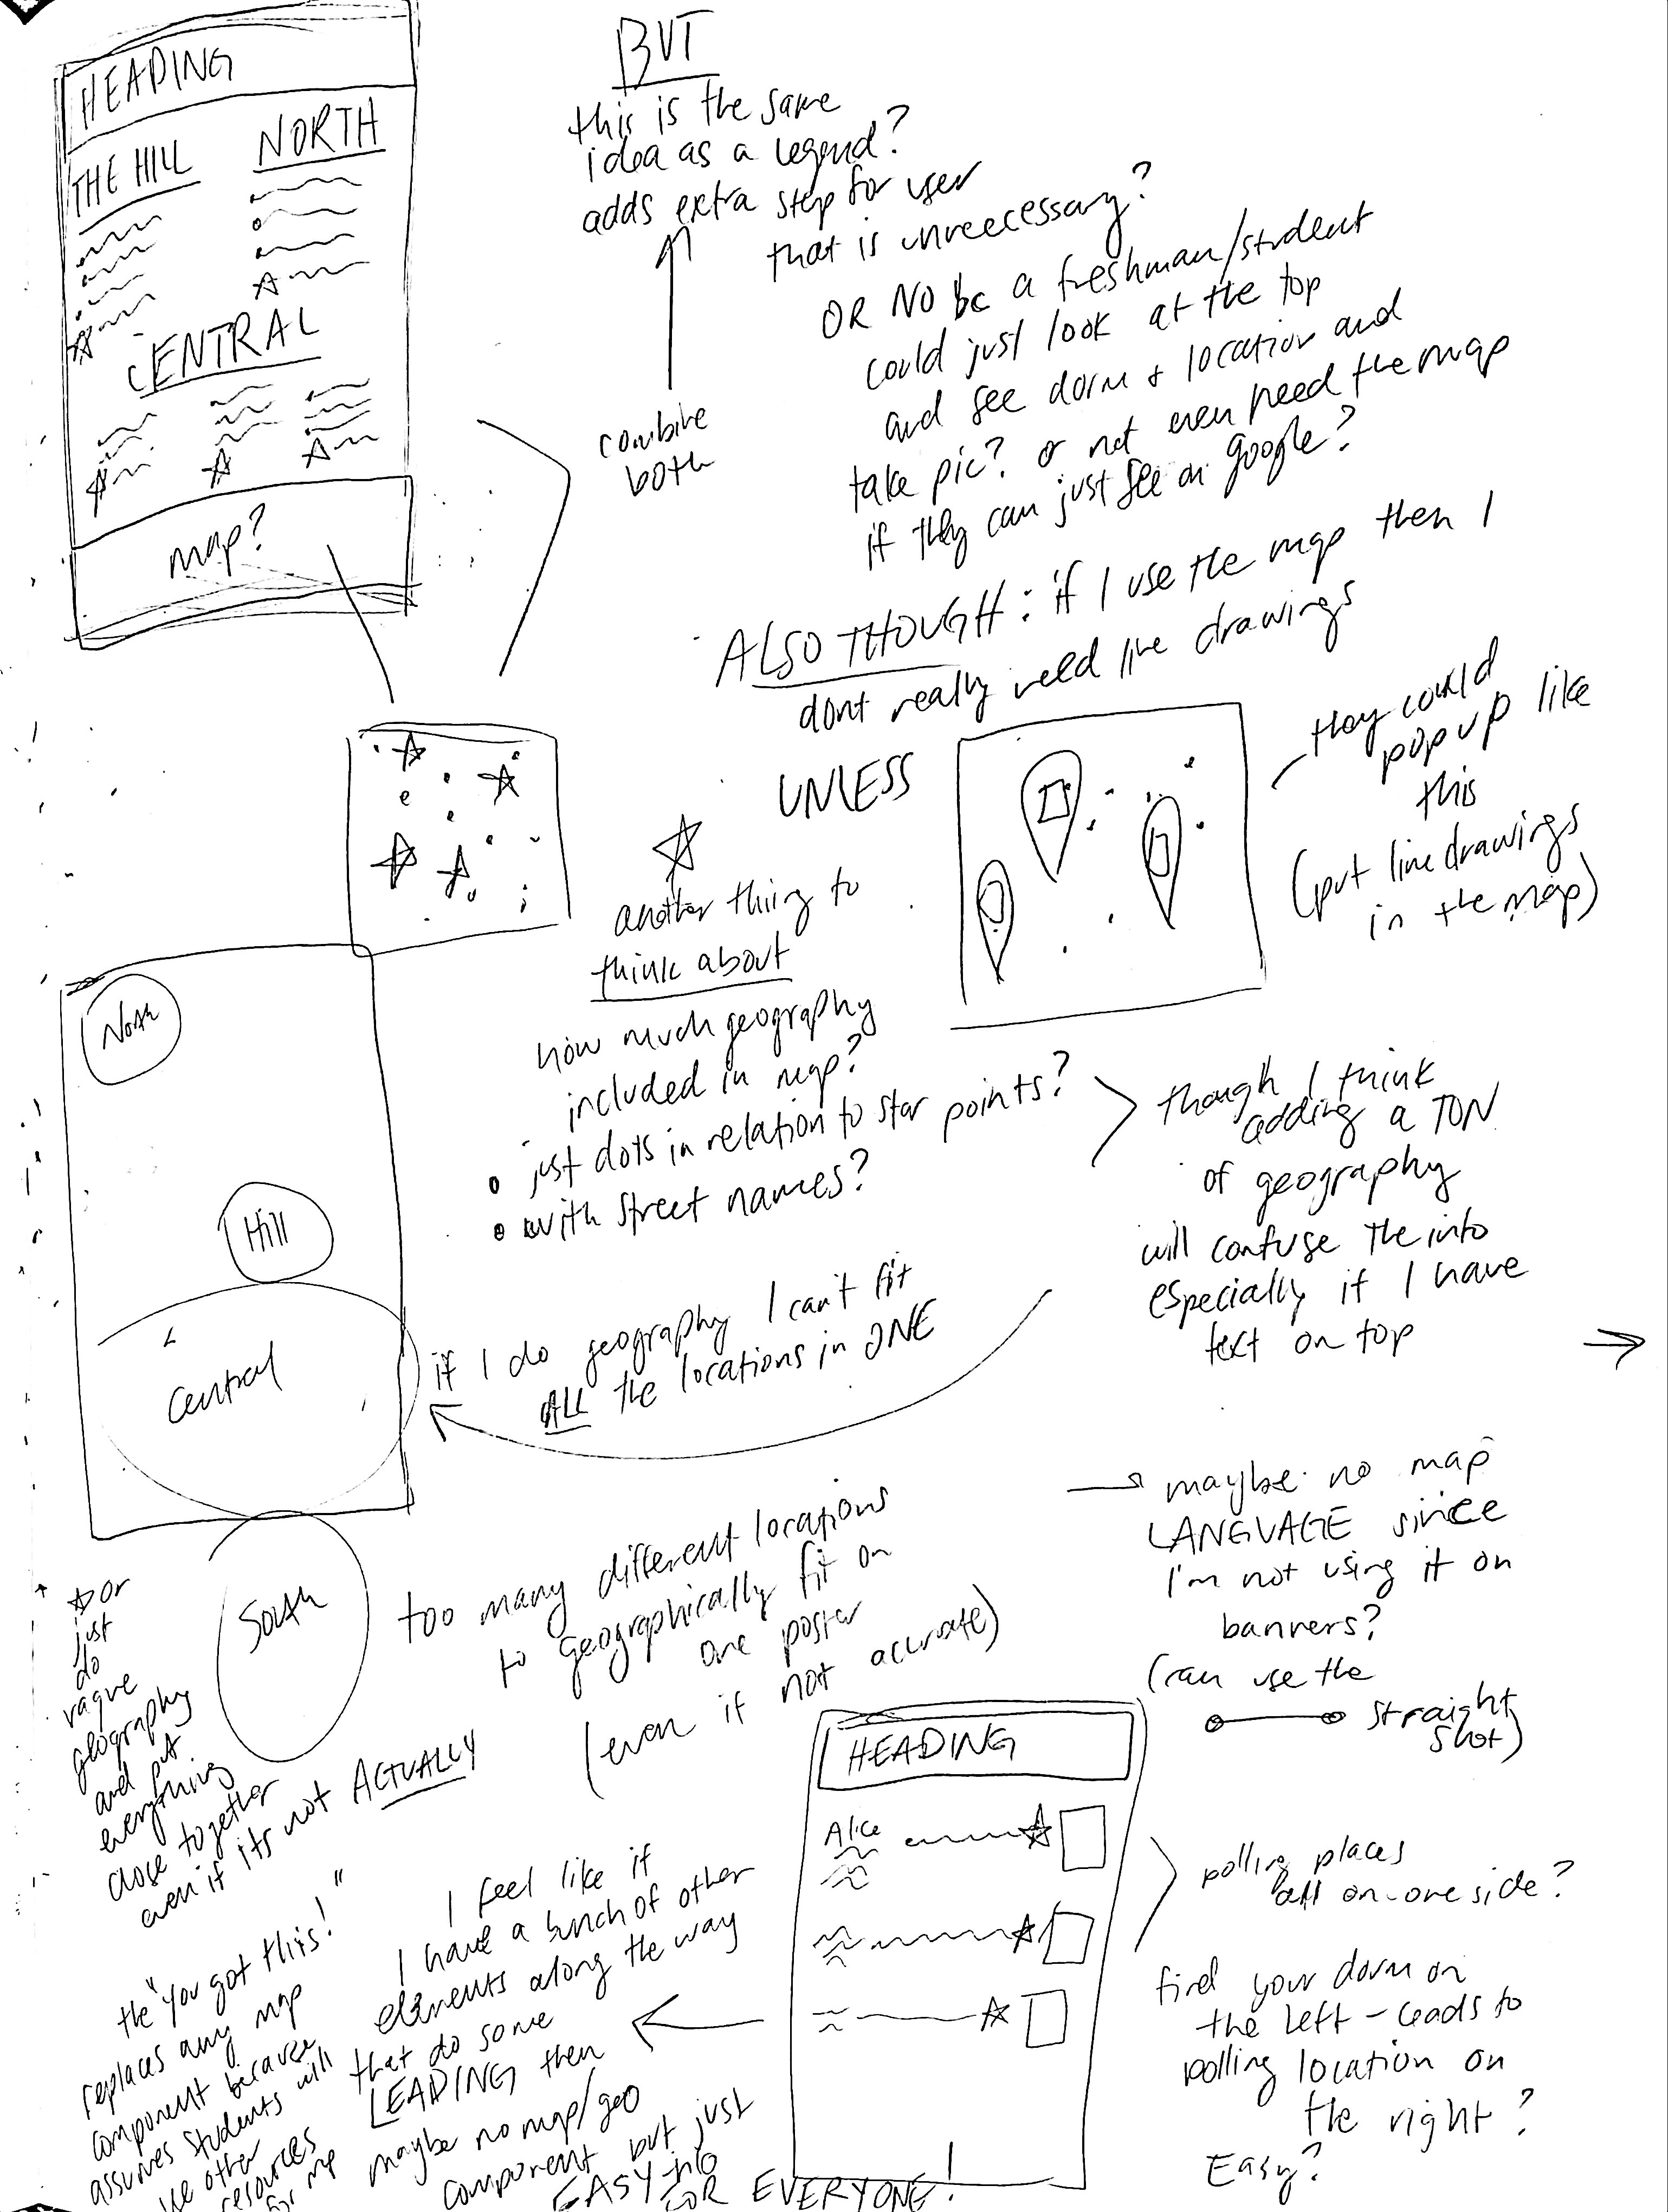 HEADING
THE HILL
NORTH
CENTRAL
map?
BUT
this is the same
idea as a legend?
adds extra step for user
that is unnecessary?
OR NO bc a freshman/student
could just look at the top
and see dorm + location and
take pic? or not even need the map
if they can just see on google?
combine
both
ALSO THOUGH: if I use the map then I
dont really need line drawings
UNLESS
they could
pop up like
this
(put line drawings
in the map)
another thing to
think about
how much geography
included in map?
• just dots in relation to star points?
• with street names?
though I think
adding a TON
of geography
will confuse the info
especially if I have
text on top
North
Hill
Central
South
if I do geography I can't fit
ALL the locations in ONE
too many different locations
to geographically fit on
one poster
(even if not accurate)
maybe no map
LANGUAGE since
I'm not using it on
banners?
(can use the
straight
shot)
or
just
do
vague
geography
and put
everything
close together
even if its not ACTUALLY
HEADING
Alice
polling places
all on one side?
find your dorm on
the left - leads to
polling location on
the right?
Easy?
I feel like if
I have a bunch of other
elements along the way
that do some
LEADING then
maybe no map/geo
component but just
EASY INFO
FOR EVERYONE!
the "you got this!"
replaces any map
component because
assumes students will
use other
resources
for map